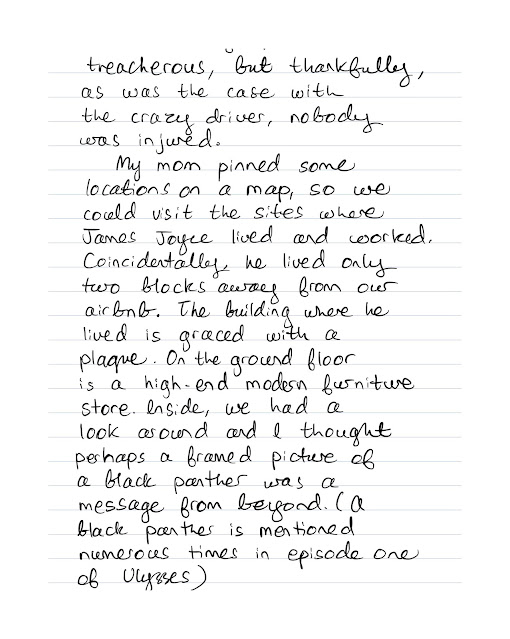 treacherous, but thankfully,
as was the case with
the crazy driver, nobody
was injured.
My mom pinned some
locations on a map, so we
could visit the sites where
James Joyce lived and worked.
Coincidentally, he lived only
two blocks away from our
airbnb. The building where he
lived is graced with a
plaque. On the ground floor
is a high-end modern furniture
store. Inside, we had a
look around and I thought
perhaps a framed picture of
a black panther was a
message from beyond. (a
black panther is mentioned
numerous times in episode one
of Ulysses)